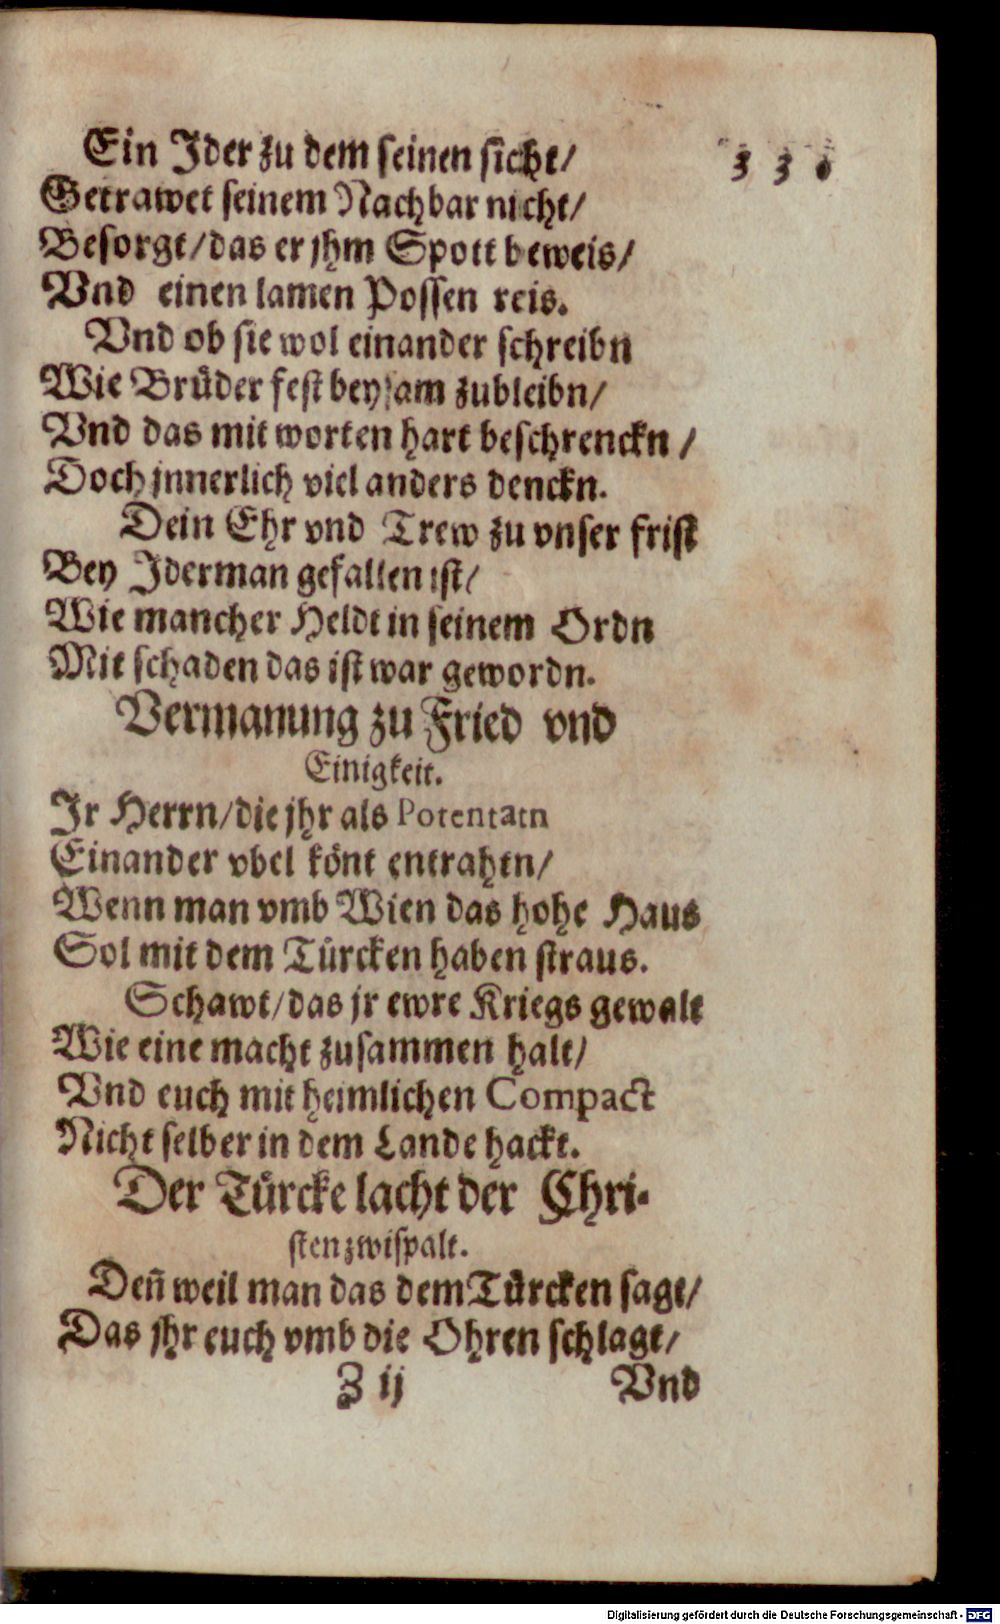 Ein Jder zu dem seinen sicht/
330
Getrawet seinem Nachbar nicht/
Besorgt/das er jhm Spott beweis/
Vnd einen lamen Possen reis.
Vnd ob sie wol einander schreibn
Wie Brůder fest beysam zubleibn/
Vnd das mit worten hart beschrenckn/
Doch jnnerlich viel anders denckn.
Dein Ehr vnd Trew zu vnser frist
Bey Jderman gefallen ist/
Wie mancher Heldt in seinem Ordn
Mit schaden das ist war gewordn.
Vermanung zu Fried vnd
Einigkeit.
Jr Herrn/die jhr als Potentatn
Einander vbel könt entrahtn/
Wenn man vmb Wien das hohe Haus
Sol mit dem Türcken haben straus.
Schawt/das jr ewre Kriegs gewalt
Wie eine macht zusammen halt/
Vnd euch mit heimlichen Compact
Nicht selber in dem Lande hackt.
Der Türcke lacht der Chri-
sten zwispalt.
Deñ weil man das dem Türcken sagt/
Das jhr euch vmb die Ohren schlagt/
Z ij
Vnd
Digitalisierung gefördert durch die Deutsche Forschungsgemeinschaft - DFG